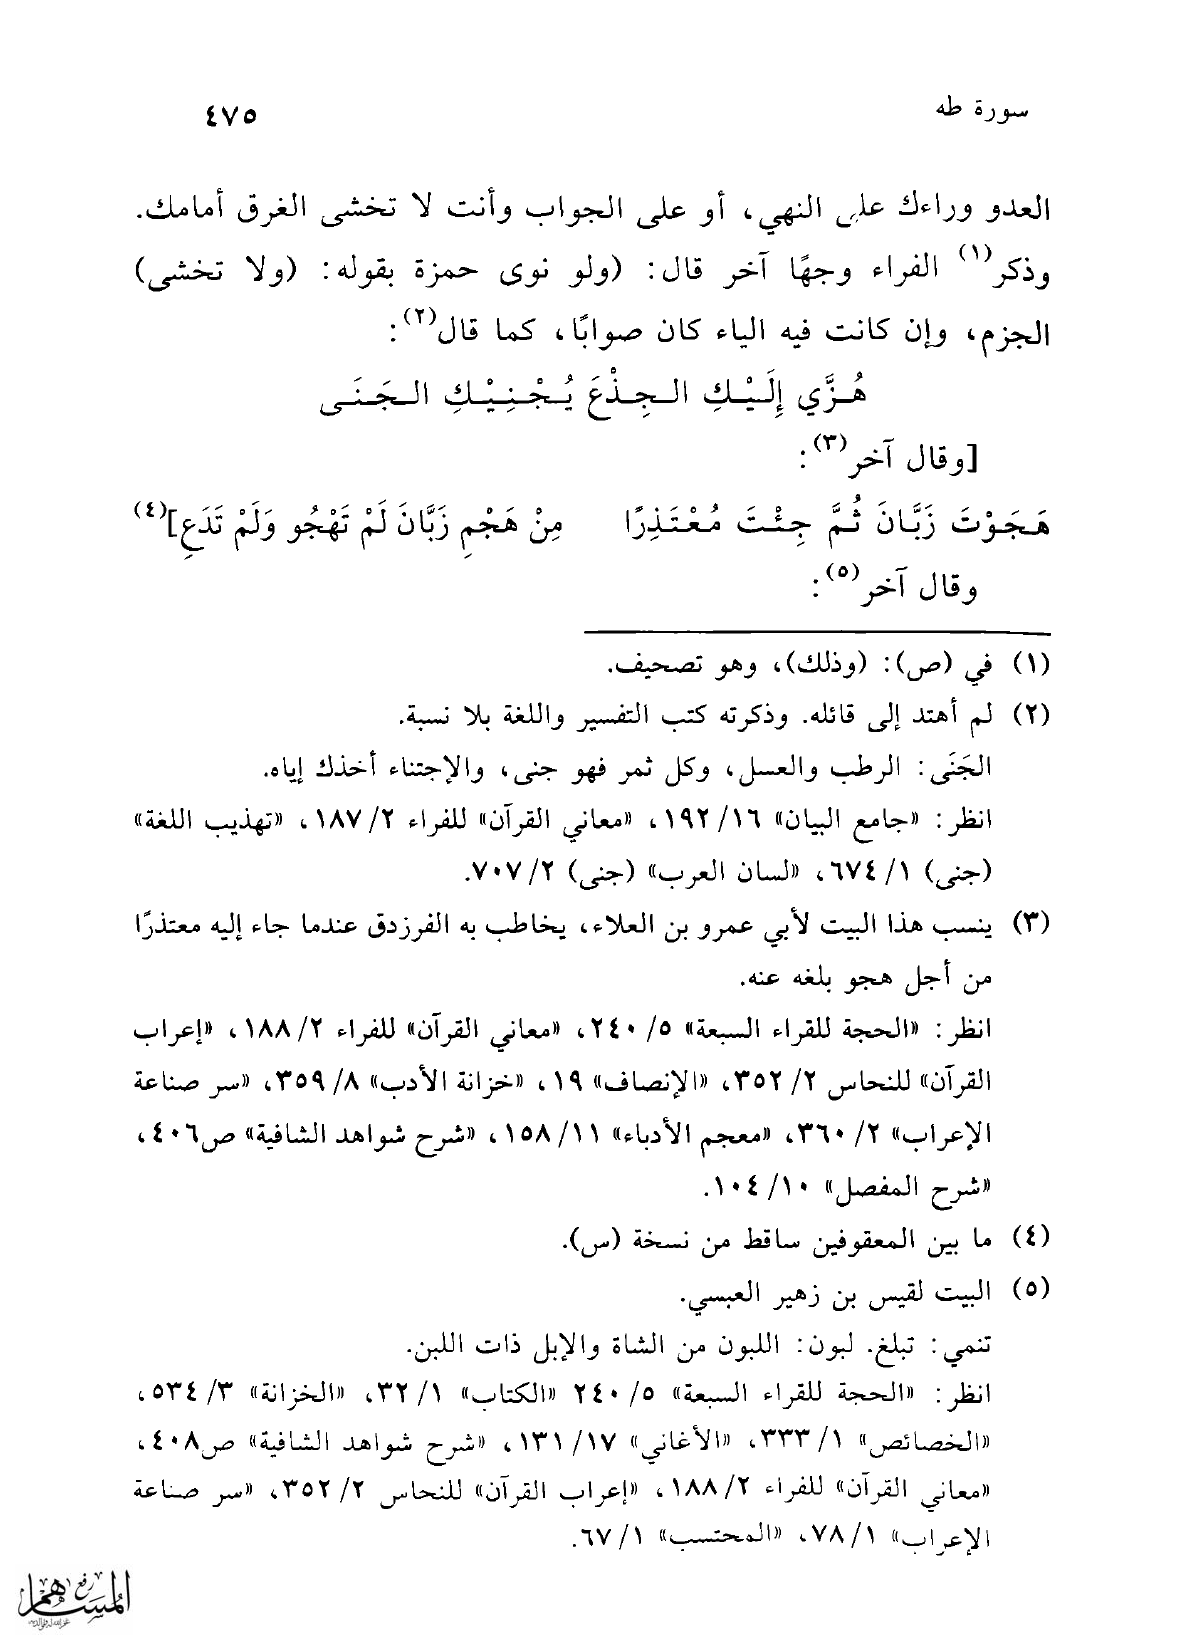 سورة طه ٤٧٥
العدو وراءك على النهي، أو على الجواب وأنت لا تخشى الغرق أمامك.
وذكر(١) الفراء وجهًا آخر قال: (ولو نوى حمزة بقوله: (ولا تخشى)
الجزم، وإن كانت فيه الياء كان صوابًا، كما قال(٢):
هُزَّي إِلَيْكِ الجِذْعَ يُجْنِيْكِ الجَنَى
[وقال آخر(٣):
هَجَوْتَ زَبَّانَ ثُمَّ جِئْتَ مُعْتَذِرًا مِنْ هَجْمِ زَبَّانَ لَمْ تَهْجُو وَلَمْ تَدَعِ](٤)
وقال آخر(٥):
(١) في (ص): (وذلك)، وهو تصحيف.
(٢) لم أهتد إلى قائله. وذكرته كتب التفسير واللغة بلا نسبة.
الجَنَى: الرطب والعسل، وكل ثمر فهو جنى، والإجتناء أخذك إياه.
انظر: «جامع البيان» ١٦/ ١٩٢، «معاني القرآن» للفراء ٢/ ١٨٧، «تهذيب اللغة»
(جنى) ١/ ٦٧٤، «لسان العرب» (جنى) ٢/ ٧٠٧.
(٣) ينسب هذا البيت لأبي عمرو بن العلاء، يخاطب به الفرزدق عندما جاء إليه معتذرًا
من أجل هجو بلغه عنه.
انظر: «الحجة للقراء السبعة» ٥/ ٢٤٠، «معاني القرآن» للفراء ٢/ ١٨٨، «إعراب
القرآن» للنحاس ٢/ ٣٥٢، «الإنصاف» ١٩، «خزانة الأدب» ٨/ ٣٥٩، «سر صناعة
الإعراب» ٢/ ٣٦٠، «معجم الأدباء» ١١/ ١٥٨، «شرح شواهد الشافية» ص٤٠٦،
«شرح المفصل» ١٠/ ١٠٤.
(٤) ما بين المعقوفين ساقط من نسخة (س).
(٥) البيت لقيس بن زهير العبسي.
تنمي: تبلغ. لبون: اللبون من الشاة والإبل ذات اللبن.
انظر: «الحجة للقراء السبعة» ٥/ ٢٤٠ «الكتاب» ١/ ٣٢، «الخزانة» ٣/ ٥٣٤،
«الخصائص» ١/ ٣٣٣، «الأغاني» ١٧/ ١٣١، «شرح شواهد الشافية» ص٤٠٨،
«معاني القرآن» للفراء ٢/ ١٨٨، «إعراب القرآن» للنحاس ٢/ ٣٥٢، «سر صناعة
الإعراب» ١/ ٧٨، «المحتسب» ١/ ٦٧.